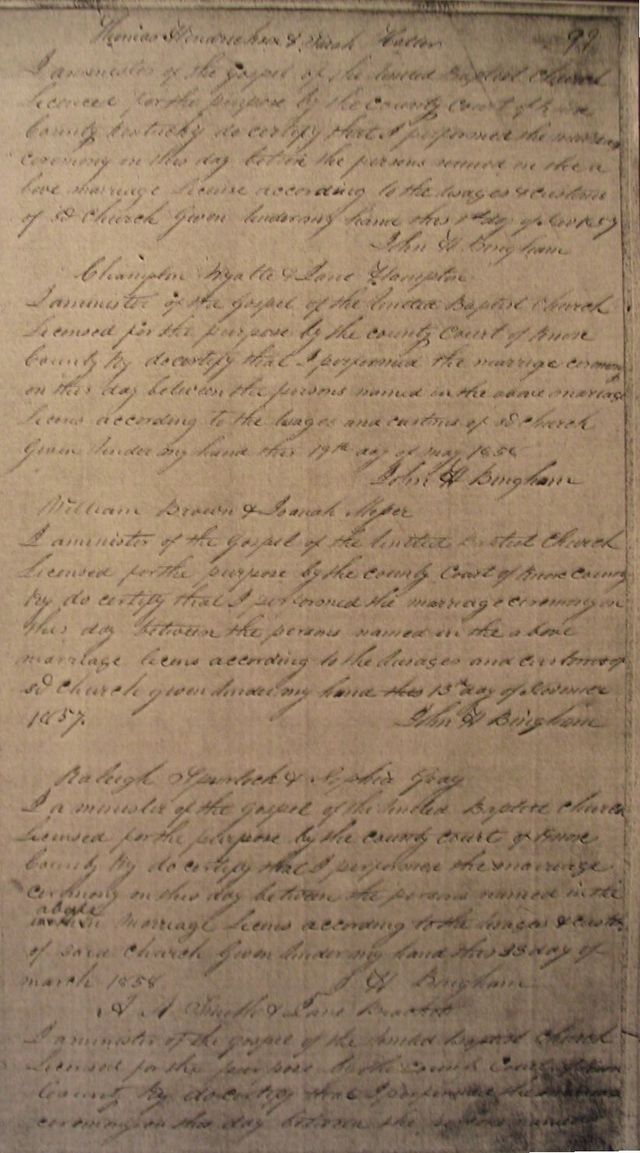 Thomas Hendrickson & Sarah
I a minister of the gospel of the United Baptist Church
Licenced for the purpose by the County Court of Knox
County Kentucky do certify that I performed the marriage
ceremony on this day betwen the persons named in the a
bove marriage License according to the usages & custom
of sd Church Given under my hand this day of 1857
John H Bingham
Champton Wyatte & Jane Hampton
I a minister of the gospel of the United Baptist Church
Licensed for the purpose by the county Court of Knox
County Ky do certify that I performed the marrige ceremony
on this day between the persons named in the above marriage
licens according to the usages and customs of sd church
Given under my hand this 19th day of may 1858
John H Bingham
William Brown &
I a minister of the Gospel of the United Baptist Church
Licensed for the purpose by the county Court of Knox County
Ky do certify that I performed the marriage ceremony on
this day between the persons named in the above
marriage licens according to the usages and customs of
sd Church given under my hand this 13th day of
1857.
John H Bingham
Raleigh Spurlock & Sophia Gray
I a minister of the Gospel of the United Baptist Church
Licensed for the purpose by the county court of Knox
County Ky do certify that I performed the marriage
ceremony on this day between the persons named in the
above
Marriage licens according to the usages & customs
of said Church Given under my hand this 23 day of
march 1858
J H Bingham
A A Smith & Jane
I a minister of the gospel of the United Baptist Church
Licensed for the purpose by the County Court of Knox
County Ky do certify that I performed the marriage
ceremony on this day between the persons named